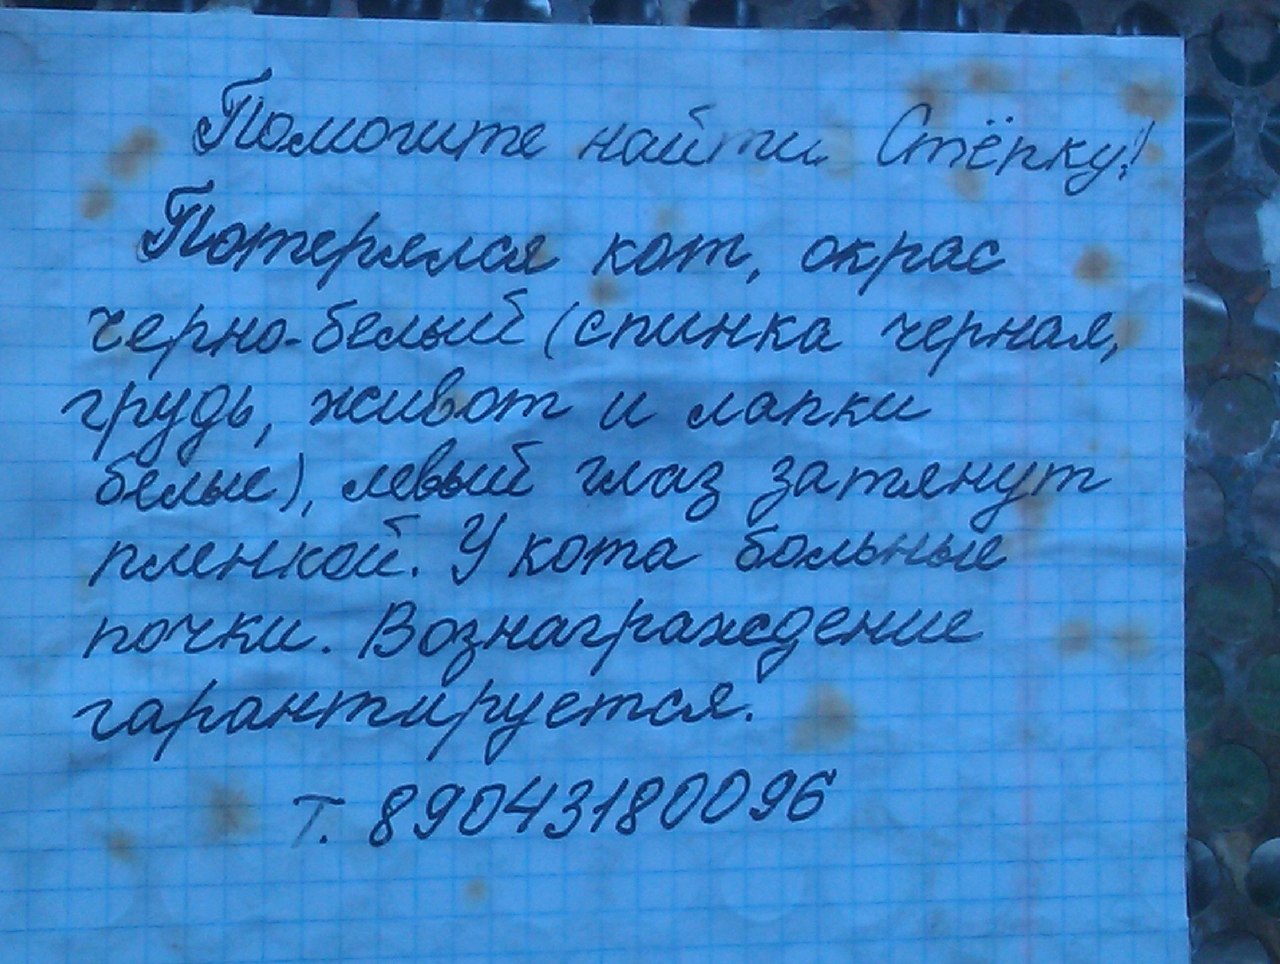 Помогите найти Стёпку!
Потерялся кот, окрас
черно-белый (спинка черная,
грудь, живот и лапки
белые), левый глаз затянут
пленкой. У кота больные
почки. Вознаграждение
гарантируется.
т. 89043180096